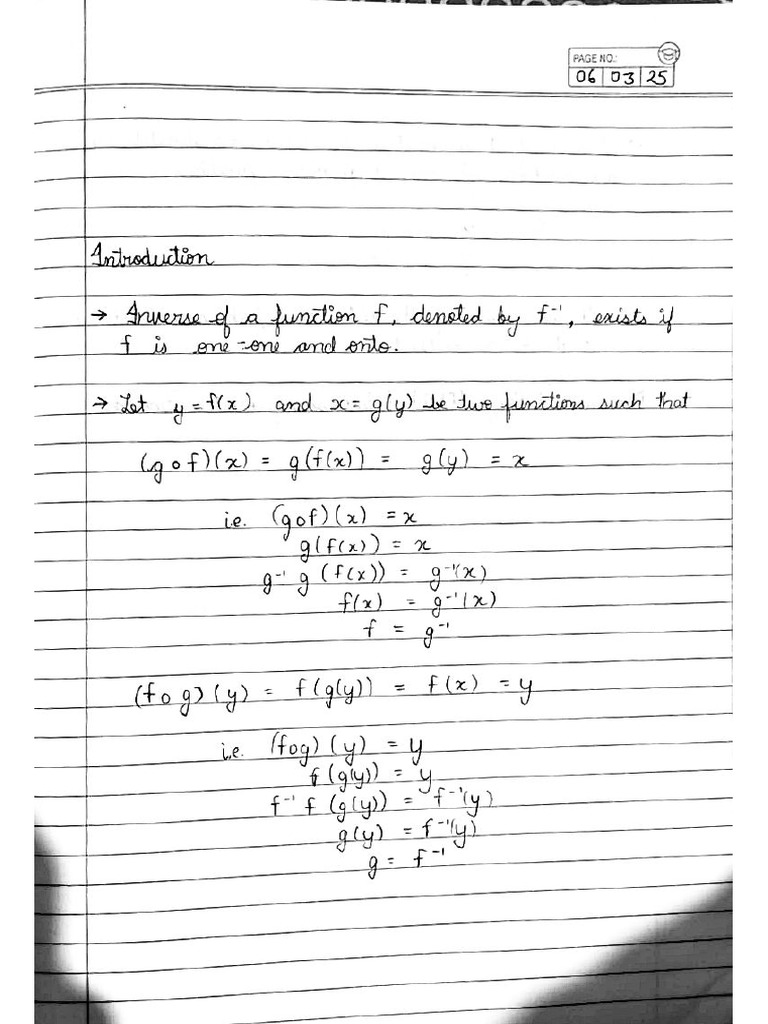 PAGE NO.:
06 03 25
Introduction
→ Inverse of a function f, denoted by f⁻¹, exists if
f is one-one and onto.
→ Let y = f(x) and x = g(y) be two functions such that
(g o f)(x) = g(f(x)) = g(y) = x
i.e. (gof)(x) = x
g(f(x)) = x
g⁻¹ g (f(x)) = g⁻¹(x)
f(x) = g⁻¹(x)
f = g⁻¹
(f o g)(y) = f(g(y)) = f(x) = y
i.e. (fog)(y) = y
f(g(y)) = y
f⁻¹ f (g(y)) = f⁻¹(y)
g(y) = f⁻¹(y)
g = f⁻¹